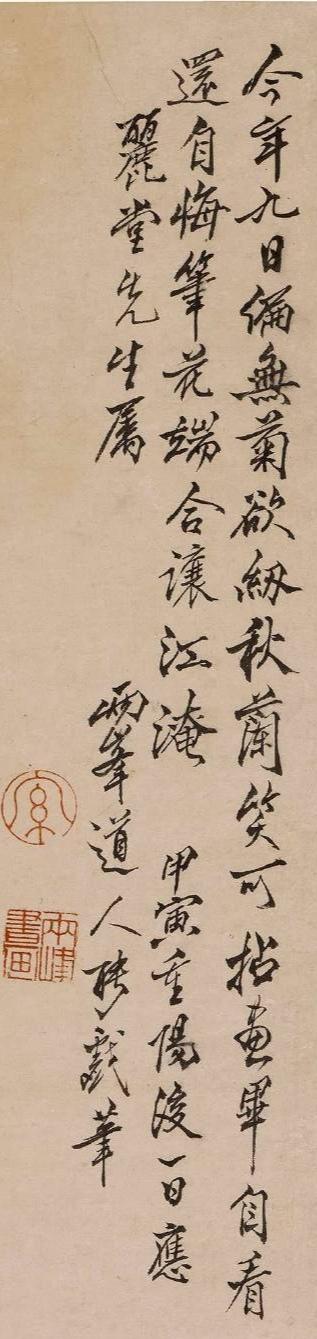 今年九日偏無菊欲紉秋蘭笑可拈畫畢自看
還自悔筆花端合讓江淹 甲寅重陽後一日應
麗堂先生屬 兩峯道人聘戲筆
兩峰書畫